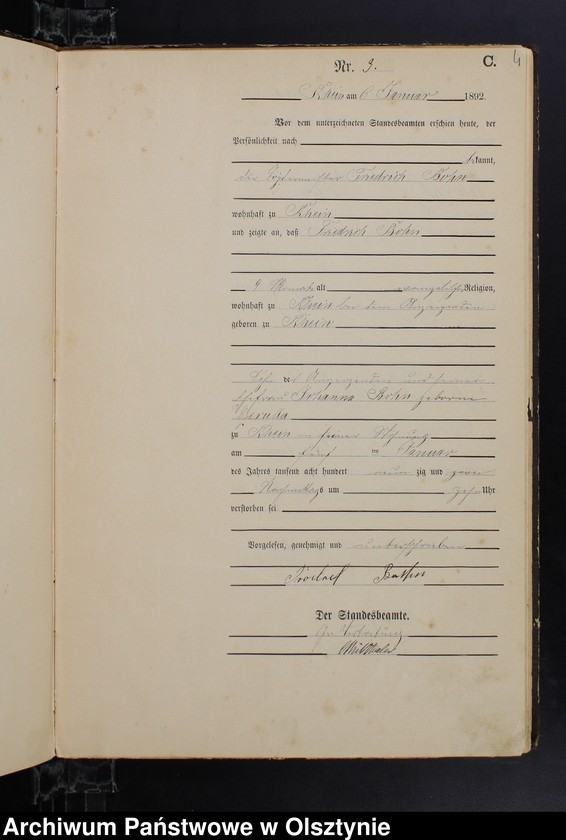 C.
4
Nr. 3.
Rhein am 6 Januar 1892.
Vor dem unterzeichneten Standesbeamten erschien heute, der
Persönlichkeit nach
kannt,
der Friedrich Bohn
wohnhaft zu Rhein
und zeigte an, daß Friedrich Bohn
9 Monat alt evangelischer Religion,
wohnhaft zu Rhein bei dem Anzeigenden
geboren zu Rhein
Sohn des Anzeigenden und seiner
Ehefrau Johanna Bohn geborene
zu Rhein in seiner Wohnung
am fünf ten Januar
des Jahres tausend acht hundert neun zig und zwei
Nachmittags um zehn Uhr
verstorben sei.
Vorgelesen, genehmigt und unterschrieben
Der Standesbeamte.
In Vertretung
Archiwum Państwowe w Olsztynie